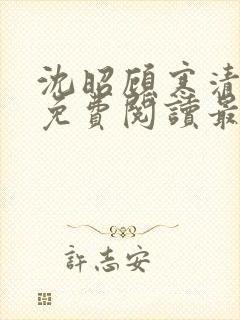 沈昭顧寒清
免費閱讀最
許志安